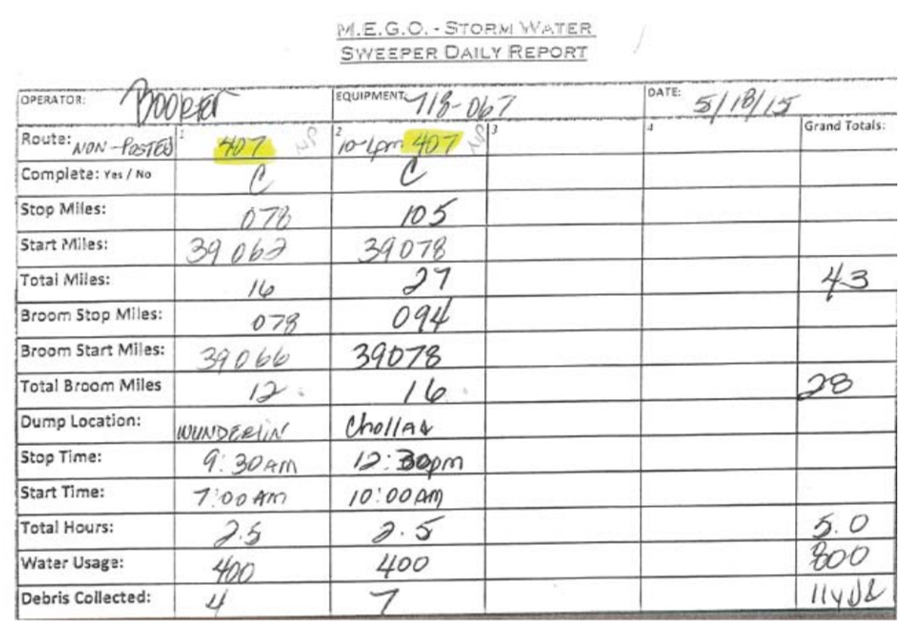 M.E.G.O. - STORM WATER
SWEEPER DAILY REPORT
OPERATOR: Booker EQUIPMENT: 718-067 DATE: 5/18/15
Route: NON-POSTED 1 407 NP 2 10-1pm 407 NP 3 4 Grand Totals:
Complete: Yes / No C C
Stop Miles: 078 105
Start Miles: 39062 39078
Total Miles: 16 27 43
Broom Stop Miles: 078 094
Broom Start Miles: 39066 39078
Total Broom Miles 12 16 28
Dump Location: WUNDERLIN Chollas
Stop Time: 9:30AM 12:30pm
Start Time: 7:00AM 10:00AM
Total Hours: 2.5 2.5 5.0
Water Usage: 400 400 800
Debris Collected: 4 7 11yds